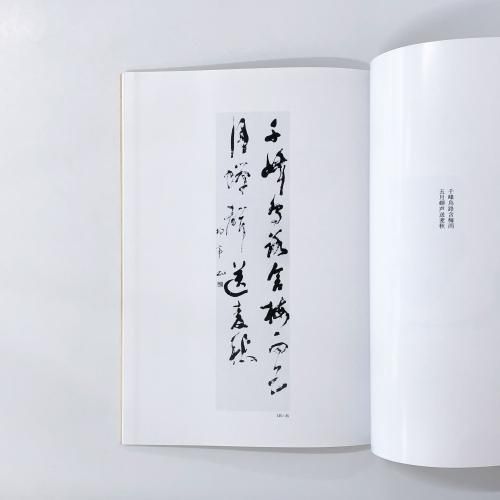 千峰鸟路含梅雨五
月蝉声送麦秋
千峰鸟路含梅雨
五月蝉声送麦秋